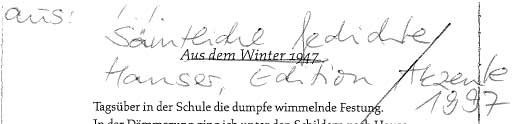 aus:
Sämtliche Gedichte
Aus dem Winter 1947
Hanser, Edition Akzente
1997
Tagsüber in der Schule die dumpfe wimmelnde Festung.
In der Dämmerung ging ich unter den Schildern nach Hause